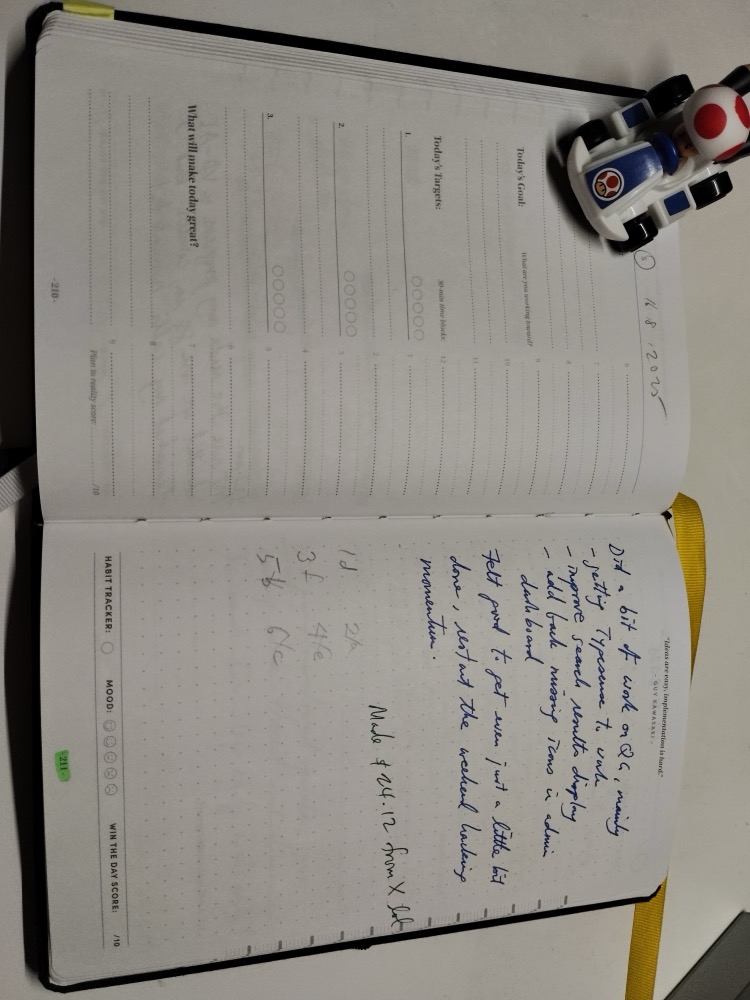 16.8.2025
Today's Goal: What are you working toward?
Today's Targets: 30-min time blocks:
1.
2.
3.
What will make today great?
6
7
8
9
10
11
12
1
2
3
4
5
6
7
8
9
Plan to reality score: /10
·210·
"Ideas are easy, Implementation is hard."
- GUY KAWASAKI -
Did a bit of work on QG, mainly
- getting Typesense to work
- improve search results display
- add back missing icons in admin
dashboard
Felt good to get even just a little bit
done, restart the weekend hacking
momentum.
Made $24.12 from X
1d
3f
5b
HABIT TRACKER: MOOD: WIN THE DAY SCORE: /10
·211·